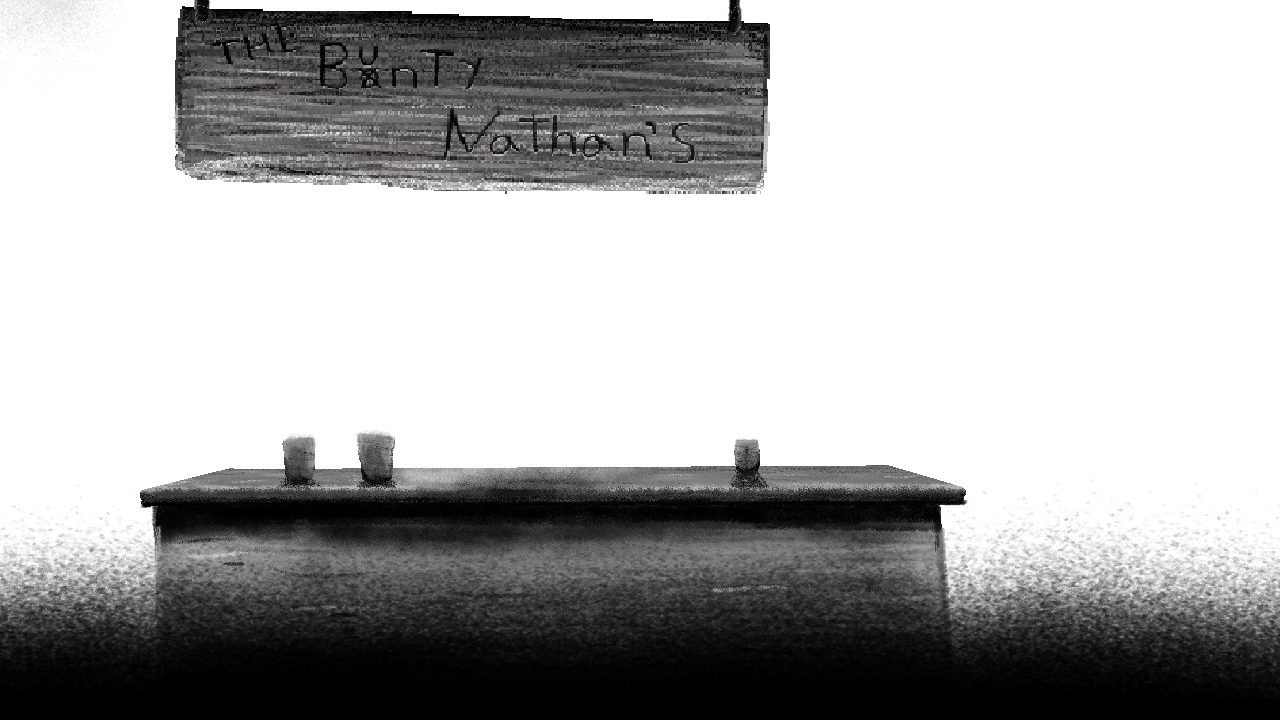 THE BUnTy
Nathan's